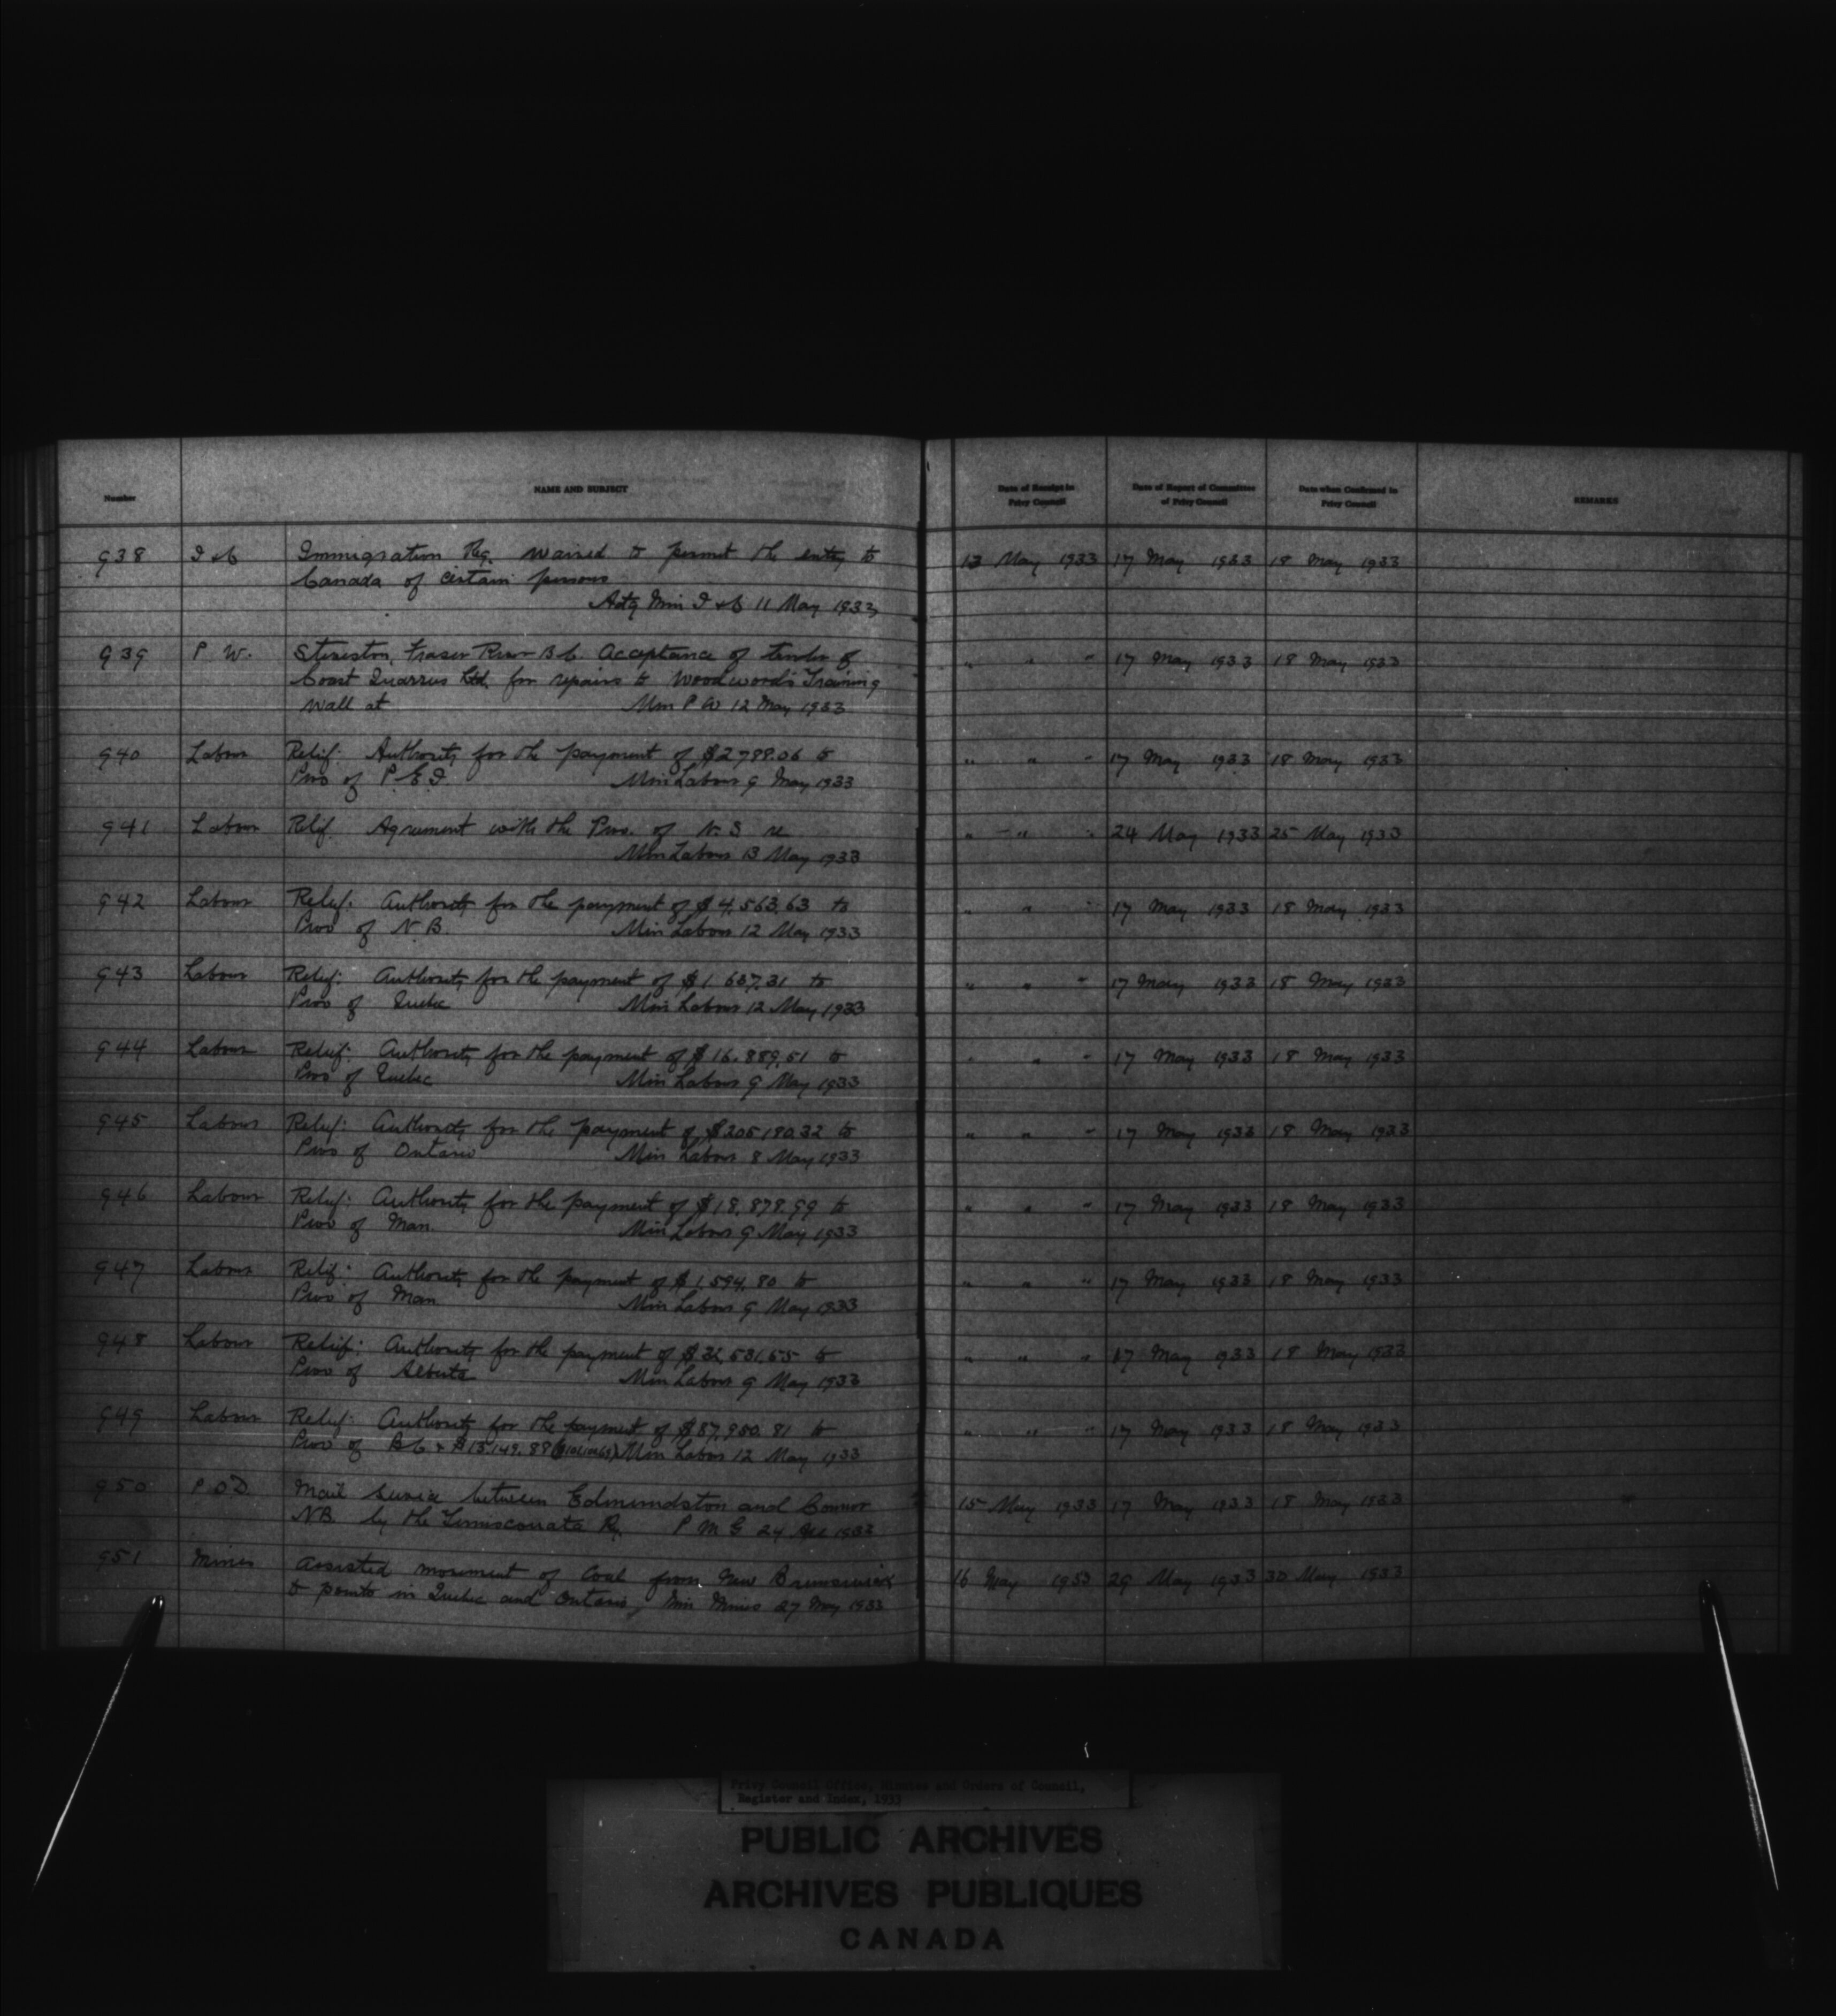 Number
NAME AND SUBJECT
Date of Receipt in
Privy Council
Date of Report of Committee
of Privy Council
Date when Confirmed in
Privy Council
REMARKS
938 I & C Immigration Reg. waived to permit the entry to 13 May 1933 17 May 1933 18 May 1933
Canada of certain persons
Actg Min I & C 11 May 1933
939 P. W. Steveston, Fraser River B C. Acceptance of tender of " " " 17 May 1933 18 May 1933
Coast Quarries Ltd. for repairs to Woodwoods Training
Wall at Min P W 12 May 1933
940 Labour Relief: Authority for the payment of $2798.06 to " " " 17 May 1933 18 May 1933
Prov of P. E. I. Min Labour 9 May 1933
941 Labour Relief Agreement with the Prov. of N. S re " " " 24 May 1933 25 May 1933
Min Labour 13 May 1933
942 Labour Relief: Authority for the payment of $4,563.63 to " " " 17 May 1933 18 May 1933
Prov of N B. Min Labour 12 May 1933
943 Labour Relief: Authority for the payment of $1 637.31 to " " " 17 May 1933 18 May 1933
Prov of Quebec Min Labour 12 May 1933
944 Labour Relief: Authority for the payment of $16,889.51 to " " " 17 May 1933 18 May 1933
Prov of Quebec Min Labour 9 May 1933
945 Labour Relief: Authority for the payment of $205180.32 to " " " 17 May 1933 18 May 1933
Prov of Ontario Min Labour 8 May 1933
946 Labour Relief: Authority for the payment of $18,878.99 to " " " 17 May 1933 18 May 1933
Prov of Man. Min Labour 9 May 1933
947 Labour Relief: Authority for the payment of $1,594.80 to " " " 17 May 1933 18 May 1933
Prov of Man Min Labour 9 May 1933
948 Labour Relief: Authority for the payment of $32,531.55 to " " " 17 May 1933 18 May 1933
Prov of Alberta Min Labour 9 May 1933
949 Labour Relief: Authority for the payment of $87,950.81 to " " " 17 May 1933 18 May 1933
Prov of B C & $13,149.88 Min Labour 12 May 1933
950 P. O. D. Mail service between Edmundston and Connor 15 May 1933 17 May 1933 18 May 1933
N B. by the Temiscouata Ry. P M G 24 1933
951 Mines Assisted movement of Coal from New Brunswick 16 May 1933 29 May 1933 30 May 1933
to points in Quebec and Ontario, Min Mines 27 May 1933
Privy Council Office, Minutes and Orders of Council,
Register and Index, 1933
PUBLIC ARCHIVES
ARCHIVES PUBLIQUES
CANADA